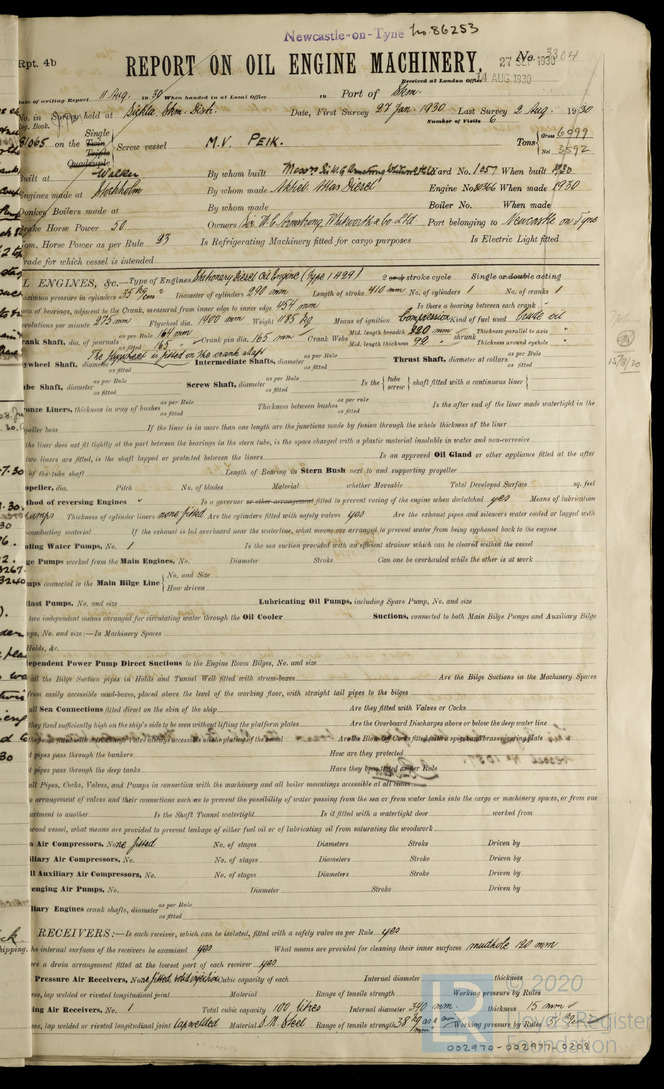 Newcastle-on-Tyne No. 86253
Rpt. 4b
REPORT ON OIL ENGINE MACHINERY.
No. 3304
Received at London Office 14 AUG. 1930
Date of writing Report 11 Aug. 1930 When handed in at Local Office 19 Port of Skm.
No. in Survey held at Sickla Skm. Distr. Date, First Survey 27 Jan. 1930 Last Survey 2 Aug. 1930
Reg. Book. Number of Visits 6
91065 on the Single Twin Triple Quadruple Screw vessel M.V. PEIK. Tons Gross 6099 Net 3592
Built at Walker By whom built Yard No. 1057 When built 1930
Engines made at Stockholm By whom made Aktieb. Atlas Diesel Engine No. When made 1930
Donkey Boilers made at By whom made Boiler No. When made
Brake Horse Power 50 Owners Sir W.G. Armstrong Whitworth & Co Ltd Port belonging to Newcastle on Tyne
Nom. Horse Power as per Rule 93 Is Refrigerating Machinery fitted for cargo purposes Is Electric Light fitted
Trade for which vessel is intended
OIL ENGINES, &c.—Type of Engines Stationary Diesel Oil Engine (Type 1H29) 2 or 4 stroke cycle Single or double acting
Maximum pressure in cylinders 35 kg/cm² Diameter of cylinders 290 mm Length of stroke 410 mm No. of cylinders 1 No. of cranks 1
Span of bearings, adjacent to the Crank, measured from inner edge to inner edge 454 mm Is there a bearing between each crank
Revolutions per minute 275 Flywheel dia. 1400 mm Weight 1185 kg Means of ignition Compression Kind of fuel used Crude oil
Crank Shaft, dia. of journals as per Rule 164 mm as fitted 165 Crank pin dia. 165 mm Crank Webs Mid. length breadth 220 mm Mid. length thickness 92 shrunk Thickness parallel to axis Thickness around eyehole
The flywheel is fitted on the crank shaft
Flywheel Shaft, diameter as per Rule as fitted Intermediate Shafts, diameter as per Rule as fitted Thrust Shaft, diameter at collars as per Rule as fitted
Tube Shaft, diameter as per Rule as fitted Screw Shaft, diameter as per Rule as fitted Is the tube screw shaft fitted with a continuous liner
Bronze Liners, thickness in way of bushes as per Rule as fitted Thickness between bushes as per rule as fitted Is the after end of the liner made watertight in the
propeller boss If the liner is in more than one length are the junctions made by fusion through the whole thickness of the liner
If the liner does not fit tightly at the part between the bearings in the stern tube, is the space charged with a plastic material insoluble in water and non-corrosive
If two liners are fitted, is the shaft lapped or protected between the liners Is an approved Oil Gland or other appliance fitted at the after
end of the tube shaft Length of Bearing in Stern Bush next to and supporting propeller
Propeller, dia. Pitch No. of blades Material whether Moveable Total Developed Surface sq. feet
Method of reversing Engines Is a governor or other arrangement fitted to prevent racing of the engine when declutched yes Means of lubrication
Pumps Thickness of cylinder liners none fitted Are the cylinders fitted with safety valves yes Are the exhaust pipes and silencers water cooled or lagged with
non-conducting material If the exhaust is led overboard near the waterline, what means are arranged to prevent water from being syphoned back to the engine
Cooling Water Pumps, No. 1 Is the sea suction provided with an efficient strainer which can be cleared within the vessel
Bilge Pumps worked from the Main Engines, No. Diameter Stroke Can one be overhauled while the other is at work
Pumps connected to the Main Bilge Line No. and Size How driven
Ballast Pumps, No. and size Lubricating Oil Pumps, including Spare Pump, No. and size
Are two independent means arranged for circulating water through the Oil Cooler Suctions, connected to both Main Bilge Pumps and Auxiliary Bilge
Pumps, No. and size:—In Machinery Spaces
In Holds, &c.
Independent Power Pump Direct Suctions to the Engine Room Bilges, No. and size
Are all the Bilge Suction pipes in Holds and Tunnel Well fitted with strum-boxes Are the Bilge Suctions in the Machinery Spaces
led from easily accessible mud-boxes, placed above the level of the working floor, with straight tail pipes to the bilges
Are all Sea Connections fitted direct on the skin of the ship Are they fitted with Valves or Cocks
Are they fixed sufficiently high on the ship's side to be seen without lifting the platform plates Are the Overboard Discharges above or below the deep water line
Are the Blow Off Cocks fitted with a spigot and brass covering plate
What pipes pass through the bunkers How are they protected
What pipes pass through the deep tanks Have they been tested as per Rule
Are all Pipes, Cocks, Valves, and Pumps in connection with the machinery and all boiler mountings accessible at all times
Is the arrangement of valves and their connections such as to prevent the possibility of water passing from the sea or from water tanks into the cargo or machinery spaces, or from one
compartment to another Is the Shaft Tunnel watertight Is it fitted with a watertight door worked from
If a wood vessel, what means are provided to prevent leakage of either fuel oil or of lubricating oil from saturating the woodwork
Main Air Compressors, No. none fitted No. of stages Diameters Stroke Driven by
Auxiliary Air Compressors, No. No. of stages Diameters Stroke Driven by
Small Auxiliary Air Compressors, No. No. of stages Diameters Stroke Driven by
Scavenging Air Pumps, No. Diameter Stroke Driven by
Auxiliary Engines crank shafts, diameter as per Rule as fitted
AIR RECEIVERS:—Is each receiver, which can be isolated, fitted with a safety valve as per Rule yes
Can the internal surfaces of the receivers be examined yes What means are provided for cleaning their inner surfaces mudhole 120 mm
Is there a drain arrangement fitted at the lowest part of each receiver yes
High Pressure Air Receivers, No. none fitted, solid injection Cubic capacity of each Internal diameter thickness
Seamless, lap welded or riveted longitudinal joint Material Range of tensile strength Working pressure by Rules
Starting Air Receivers, No. 1 Total cubic capacity 100 litres Internal diameter 340 mm thickness 15 mm
Seamless, lap welded or riveted longitudinal joint lapwelded Material S.M. Steel Range of tensile strength Working pressure by Rules
© 2020
Lloyd's Register
Foundation
002970-002977-0208